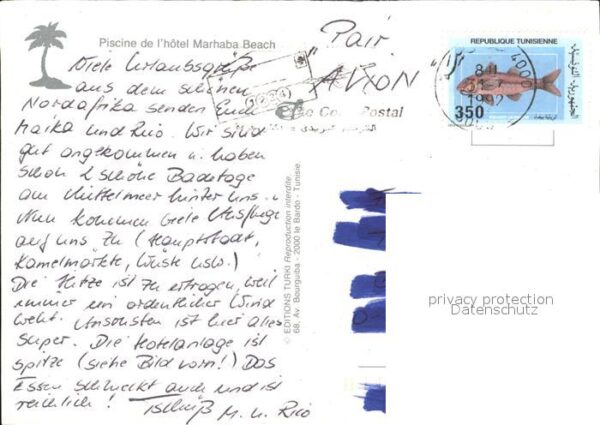 Piscine de l'hôtel Marhaba Beach
Viele Urlaubsgrüße
aus dem schönen
Nordafrika senden Euch
Maika und Rico. Wir sind
gut angekommen u. haben
schon 2 schöne Badetage
am Mittelmeer hinter uns. u
Nun kommen viele Ausflüge
auf uns zu (Hauptstadt,
Kamelmärkte, Wüste usw.)
Die Hitze ist zu ertragen, weil
immer ein ordentlicher Wind
weht. Ansonsten ist hier alles
super. Die Hotelanlage ist
spitze (siehe Bild vorn!) Das
Essen schmeckt auch und ist
reichlich! Tschüß M. u. Rico
© EDITIONS TURKI Reproduction interdite.
68, Av. Bourguiba - 2000 le Bardo - Tunisie.
Pair
AVION
Le Postal
REPUBLIQUE TUNISIENNE
350
4000
8
1992
privacy protection
Datenschutz